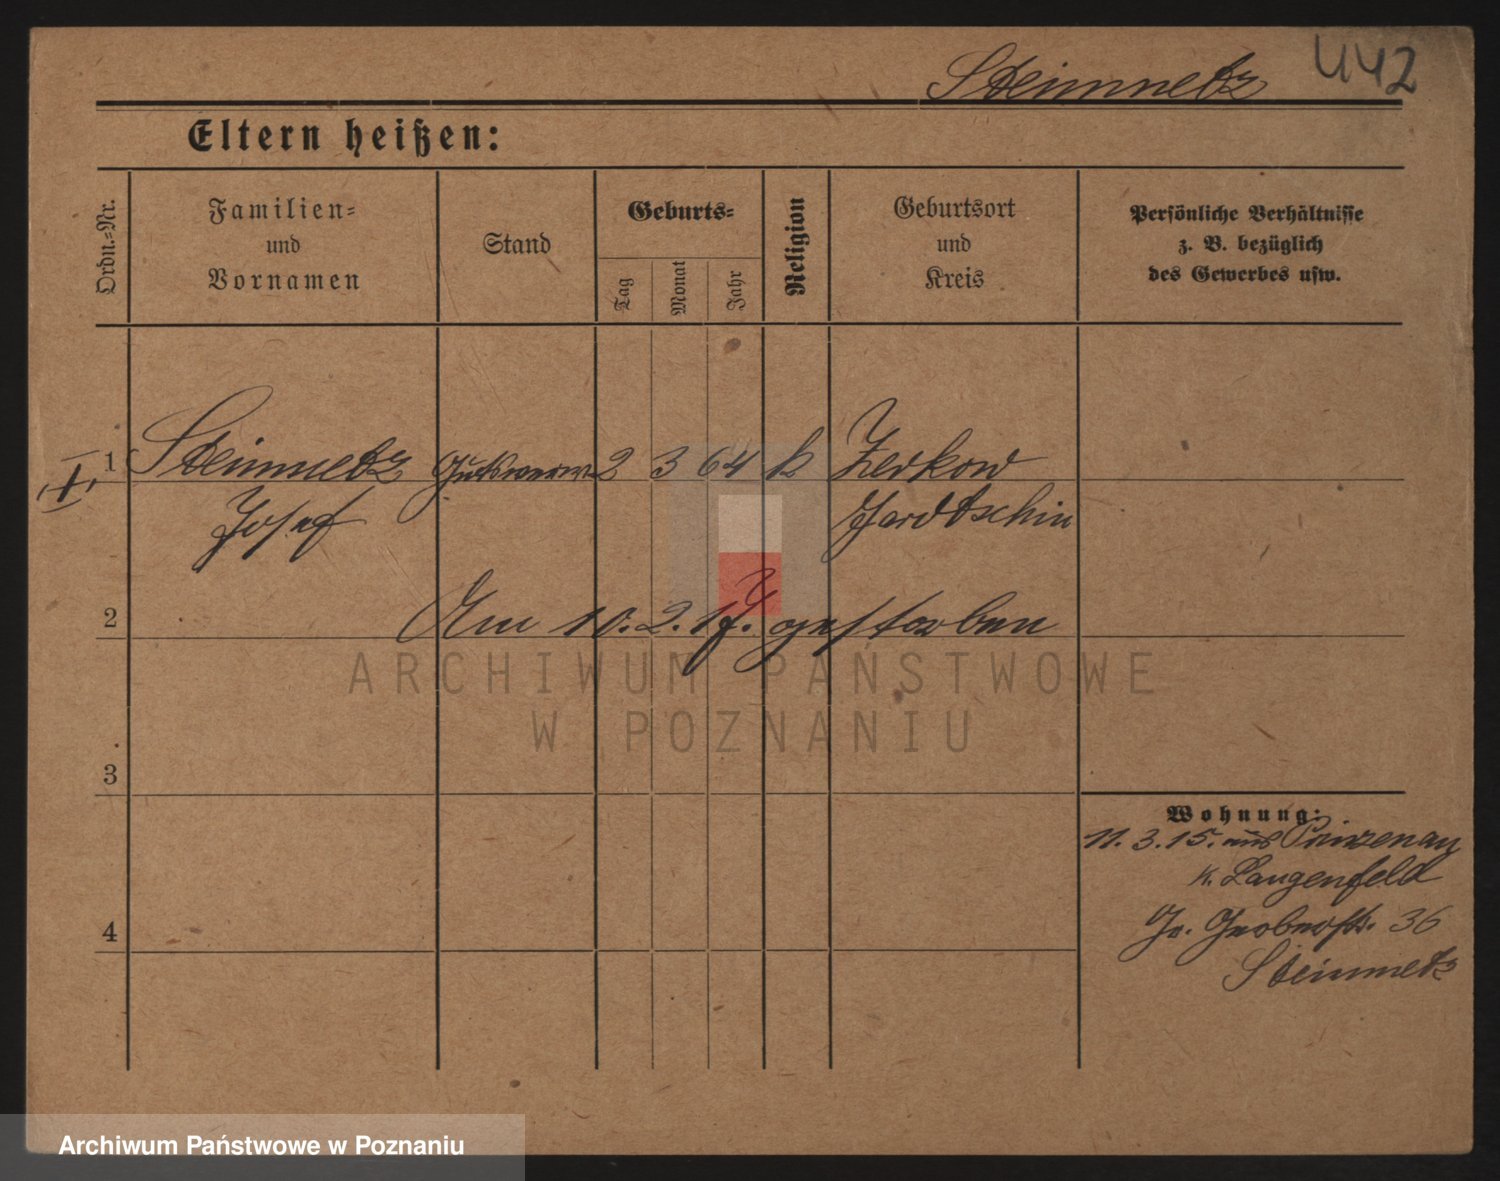 Steinmetz 442
Eltern heißen:
Ordn.-Nr.
Familien-
und
Vornamen
Stand
Geburts-
Tag
Monat
Jahr
Religion
Geburtsort
und
Kreis
Persönliche Verhältnisse
z. B. bezüglich
des Gewerbes usw.
1 Steinmetz 2 3 64 k Zerkow
Josef Jarotschin
2 Am 10. 2. 17. gestorben
ARCHIWUM PAŃSTWOWE
W POZNANIU
3
Wohnung:
11. 3. 15. aus Prinzenau
k. Langenfeld
36
4
Steinmetz
Archiwum Państwowe w Poznaniu